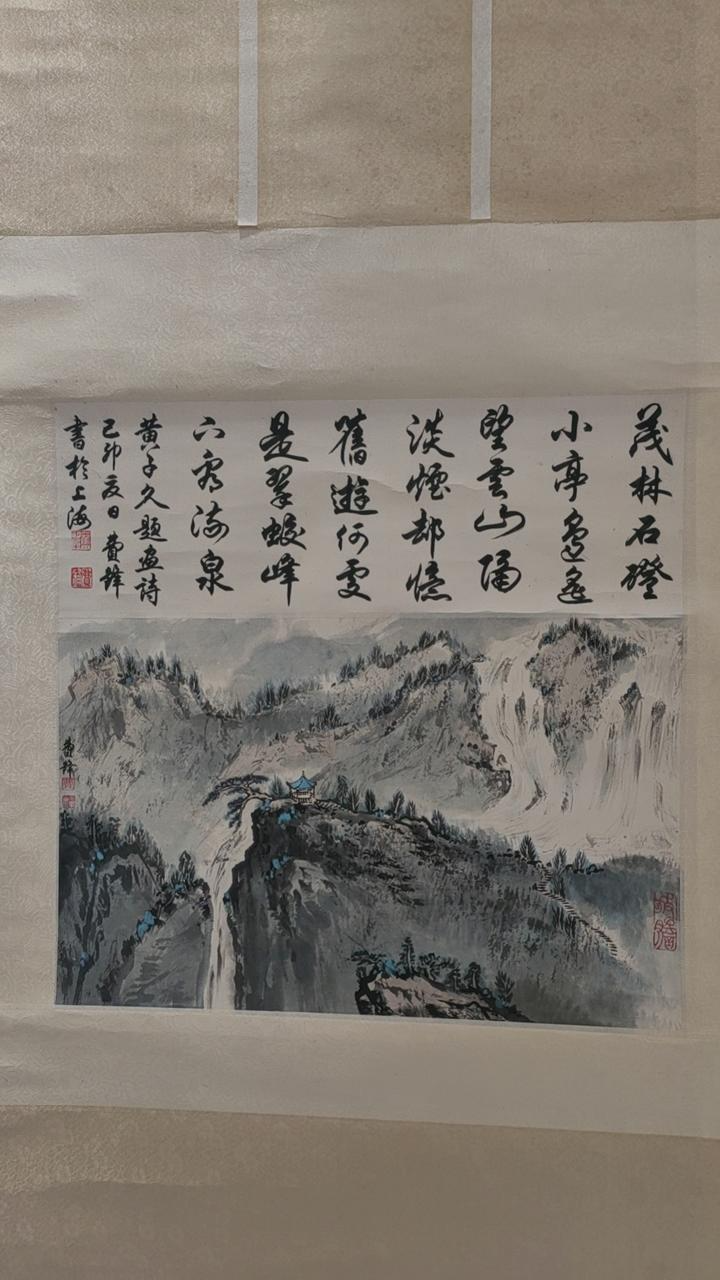 茂林石磴
小亭邊遙
望雲山隔
淡煙却憶
舊遊何處
是翠蛟峰
下看流泉
黃子久題畫詩
己卯夏日費鋒
書於上海
費鋒